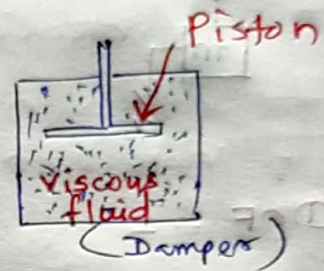 Piston
viscous
fluid
(Damper)